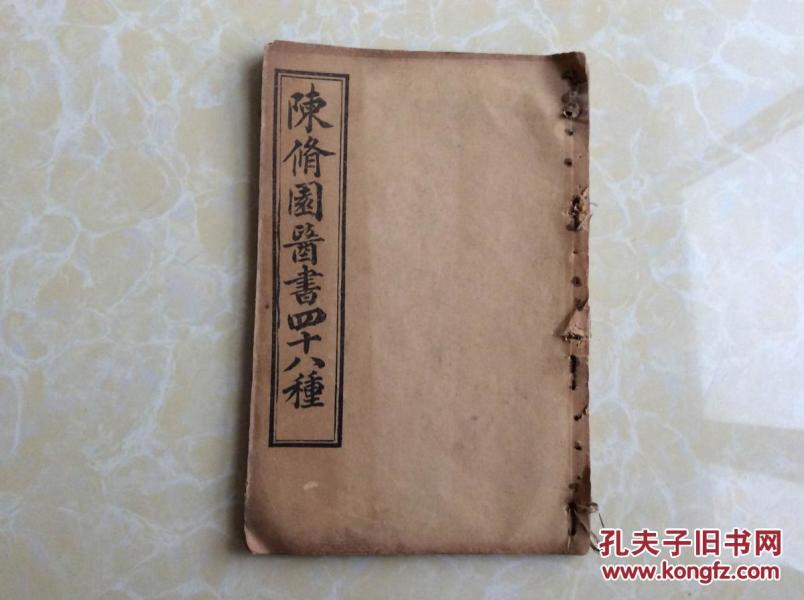 陳脩園醫書四十八種
孔夫子旧书网
www.kongfz.com